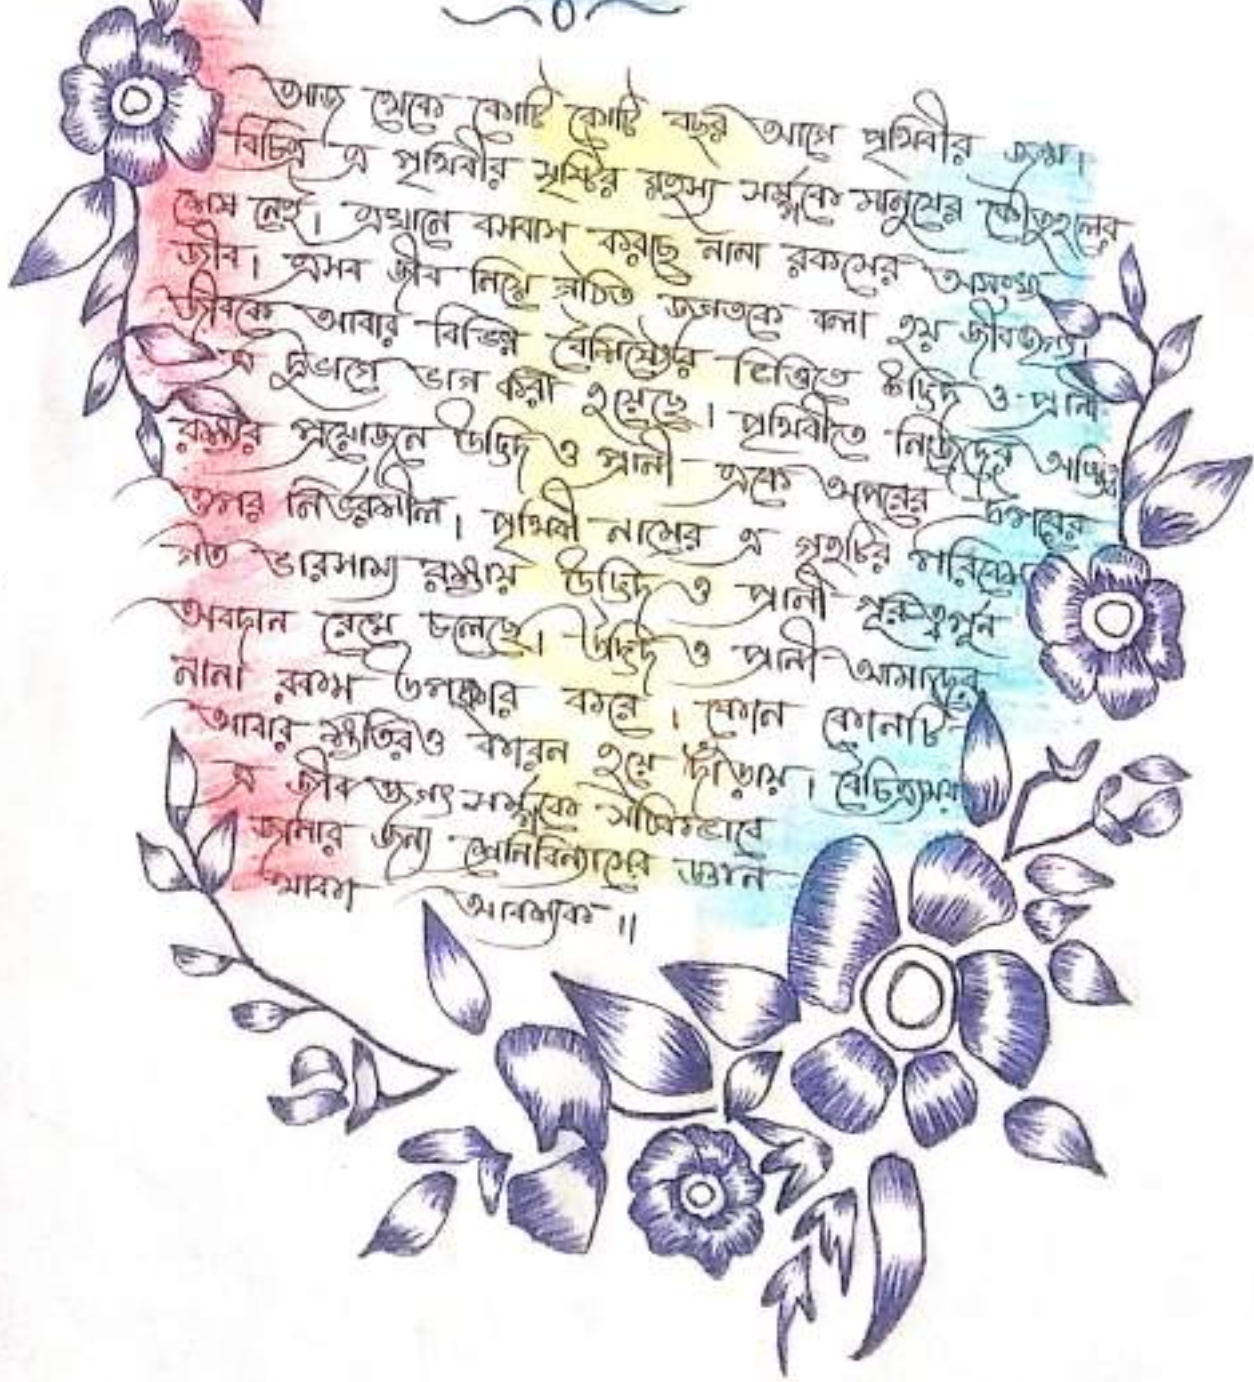 আজ থেকে কোটি কোটি বছর আগে পৃথিবীর জন্ম।
বিচিত্র এ পৃথিবীর সৃষ্টির রহস্য সর্ম্পকে মানুষের কৌতুহলের
শেষ নেই। এখানে বসবাস করছে নানা রকমের অসংখ্য
জীব। এসব জীব নিয়ে গঠিত জগতকে বলা হয় জীবজগৎ।
জীবকে আবার বিভিন্ন বৈশিষ্ট্যের ভিত্তিতে উদ্ভিদ ও প্রানী
এ দুভাগে ভাগ করা হয়েছে। পৃথিবীতে নিজেদের অস্তিত্ব
রক্ষার প্রয়োজনে উদ্ভিদ ও প্রানী একে অপরের উপরের
ওপর নির্ভরশীল। পৃথিবী নামের এ গৃহটির পরিবেশ
গত ভারসাম্য রক্ষায় উদ্ভিদ ও প্রানী গুরুত্বপূর্ন
অবদান রেখে চলেছে। উদ্ভিদ ও প্রানী আমাদের
নানা রকম উপকার করে। কোন কোনটি
আবার ক্ষতিরও কারন হয়ে দাঁড়ায়। বৈচিত্র্যময়
এ জীব জগৎ সর্ম্পকে সঠিকভাবে
জানার জন্য শ্রেনিবিন্যাসের জ্ঞান
আবশ্যক।।